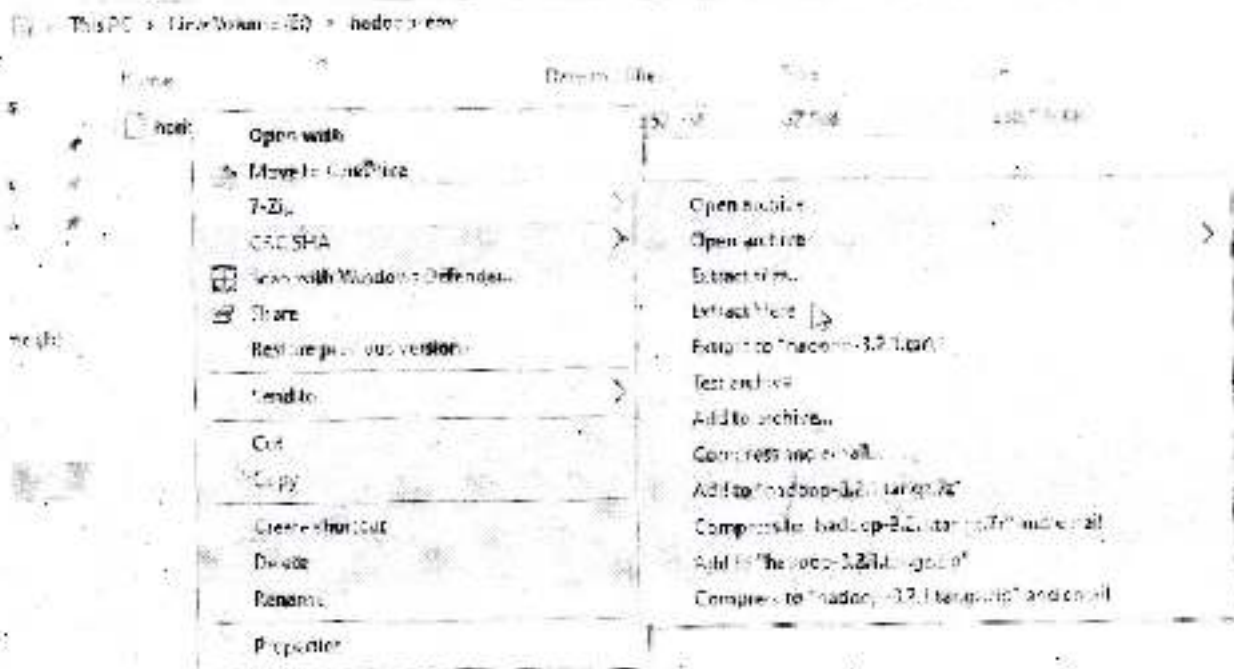 This PC > (E:) > hadoop-env
Name
Open with
Move to OneDrive
7-Zip
CRC SHA
Scan with Windows Defender...
Share
Restore previous versions
Send to
Cut
Copy
Create shortcut
Delete
Rename
Properties
Open archive
Open archive
Extract files...
Extract Here
Extract to "hadoop-3.2.1.tar\"
Test archive
Add to archive...
Compress and email...
Add to "hadoop-3.2.1.tar.gz.7z"
Compress to "hadoop-3.2.1.tar.gz.7z" and email
Add to "hadoop-3.2.1.tar.gz.zip"
Compress to "hadoop-3.2.1.tar.gz.zip" and email